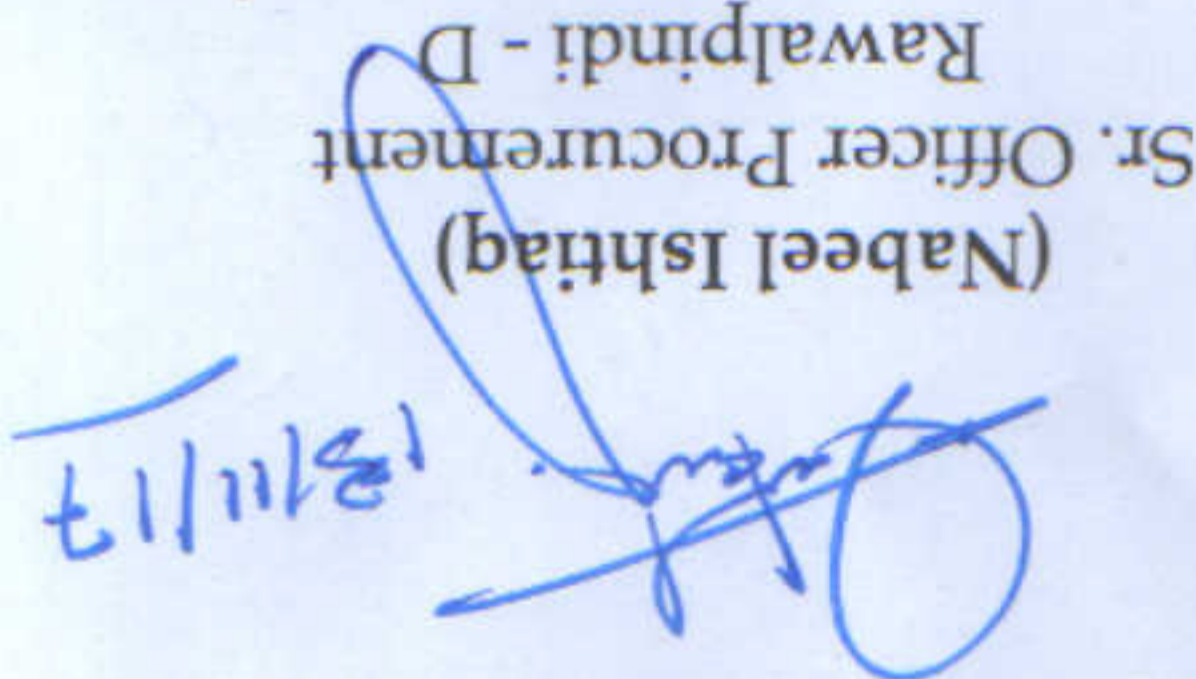 13/11/17
(Nabeel Ishtiaq)
Sr. Officer Procurement
Rawalpindi - D